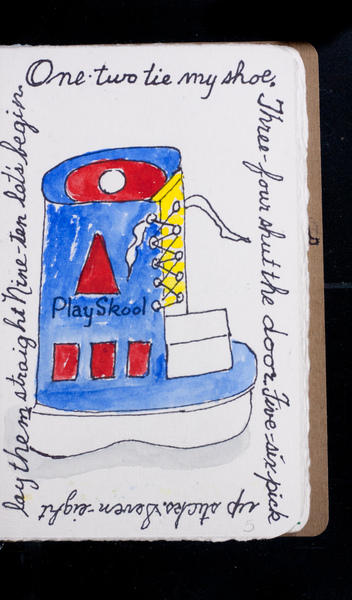 One-two tie my shoe.
Three-four shut the door. Five-six-pick
up sticks. Seven-eight
lay them straight Nine-ten let's begin.
PlaySkool
5